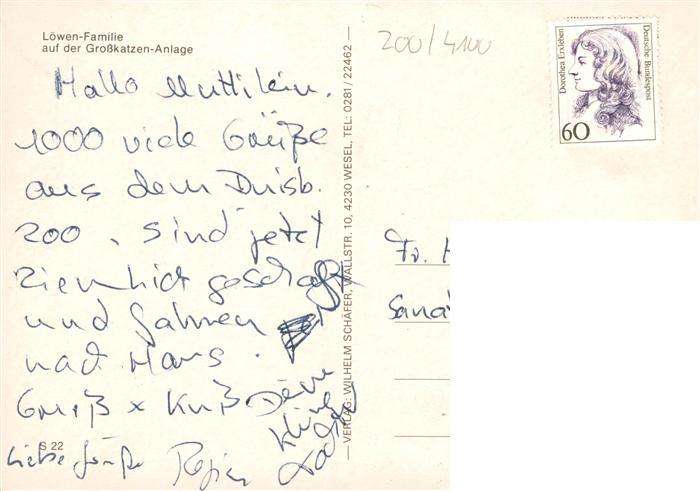 Löwen-Familie
auf der Großkatzen-Anlage
Hallo Muttilein.
1000 viele Grüße
aus dem Duisb.
Zoo, sind jetzt
ziemlich geschafft
und fahren
nach Haus.
Gruß x Kuß Deine
kleine
Liebe Grüße
S 22
— VERLAG: WILHELM SCHÄFER, WALLSTR. 10, 4230 WESEL, TEL: 0281 / 22462 —
200/4100
Dorothea Erxleben
Deutsche Bundespost
60
Fr.
Sana